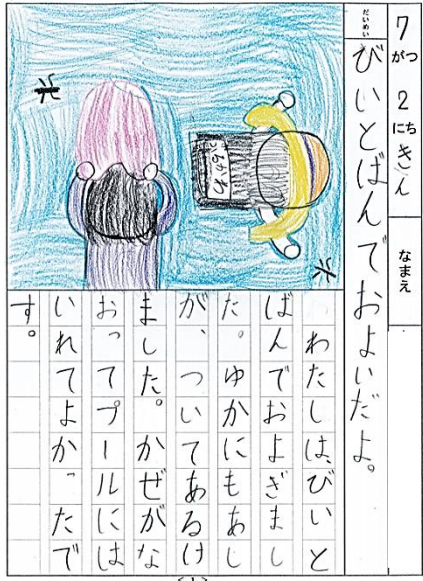 7がつ2にちきん
なまえ
だいめい
びいとばんでおよいだよ。
わたしは、びいと
ばんでおよぎまし
た。ゆかにもあし
が、ついてあるけ
ました。かぜがな
おってプールには
いれてよかったで
す。